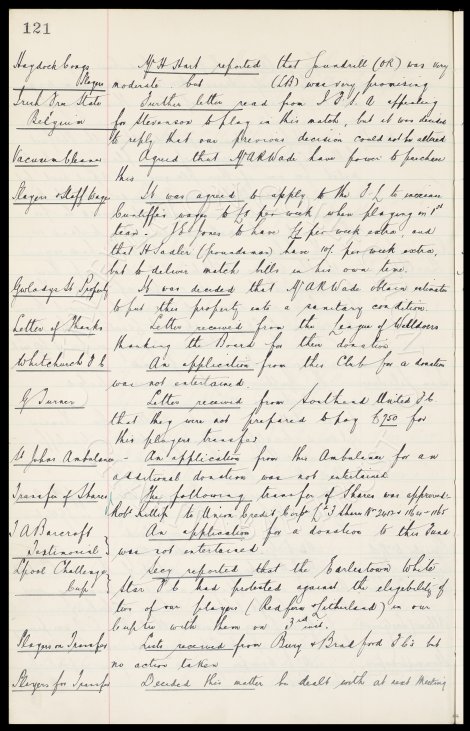 121
Haydock Congs Players
Mr H Hart reported that (OR) was very
moderate but (LB) was very promising
Irish Free State Belgium
Further letter read from I F A appealing
for Stevenson to play in this match, but it was decided
to reply that our previous decision could not be altered
Vacuum Cleaner
Agreed that Mr A R Wade have power to purchase
this
Players & Staff Wages
It was agreed to apply to the F L to increase
Cunliffes wages to £8 per week when playing in 1st
team. J E Jones to have £1 per week extra and
that H Sadler (Groundsman) have 10/- per week extra,
but to deliver match bills in his own time.
Gwladys St Property
It was decided that Mr A R Wade obtain estimates
to put this property into a sanitary condition.
Letter of Thanks
Letter received from the League of Welldoers
thanking the Board for their donation
Whitchurch F C
An application from this Club for a donation
was not entertained.
G Turner
Letter received from Southend United F C
that they were not prepared to pay £750 for
this players transfer
St Johns Ambulance
An application from this Ambulance for an
additional donation was not entertained
Transfer of Shares
The following transfer of Shares was approved:
Robt to Union Credit Corp Ld 3 Shares
J A Barcroft Testimonial
An application for a donation to this Fund
was not entertained
Lpool Challenge Cup
Secy reported that the Earlestown White
Star F C had protested against the eligibility of
two of our players (Redfern & Sutherland) in our
Cup tie with them on 3rd inst.
Players on Transfer
Lists received from Bury & Bradford F C's but
no action taken
Players for Transfer
Decided this matter be dealt with at next Meeting